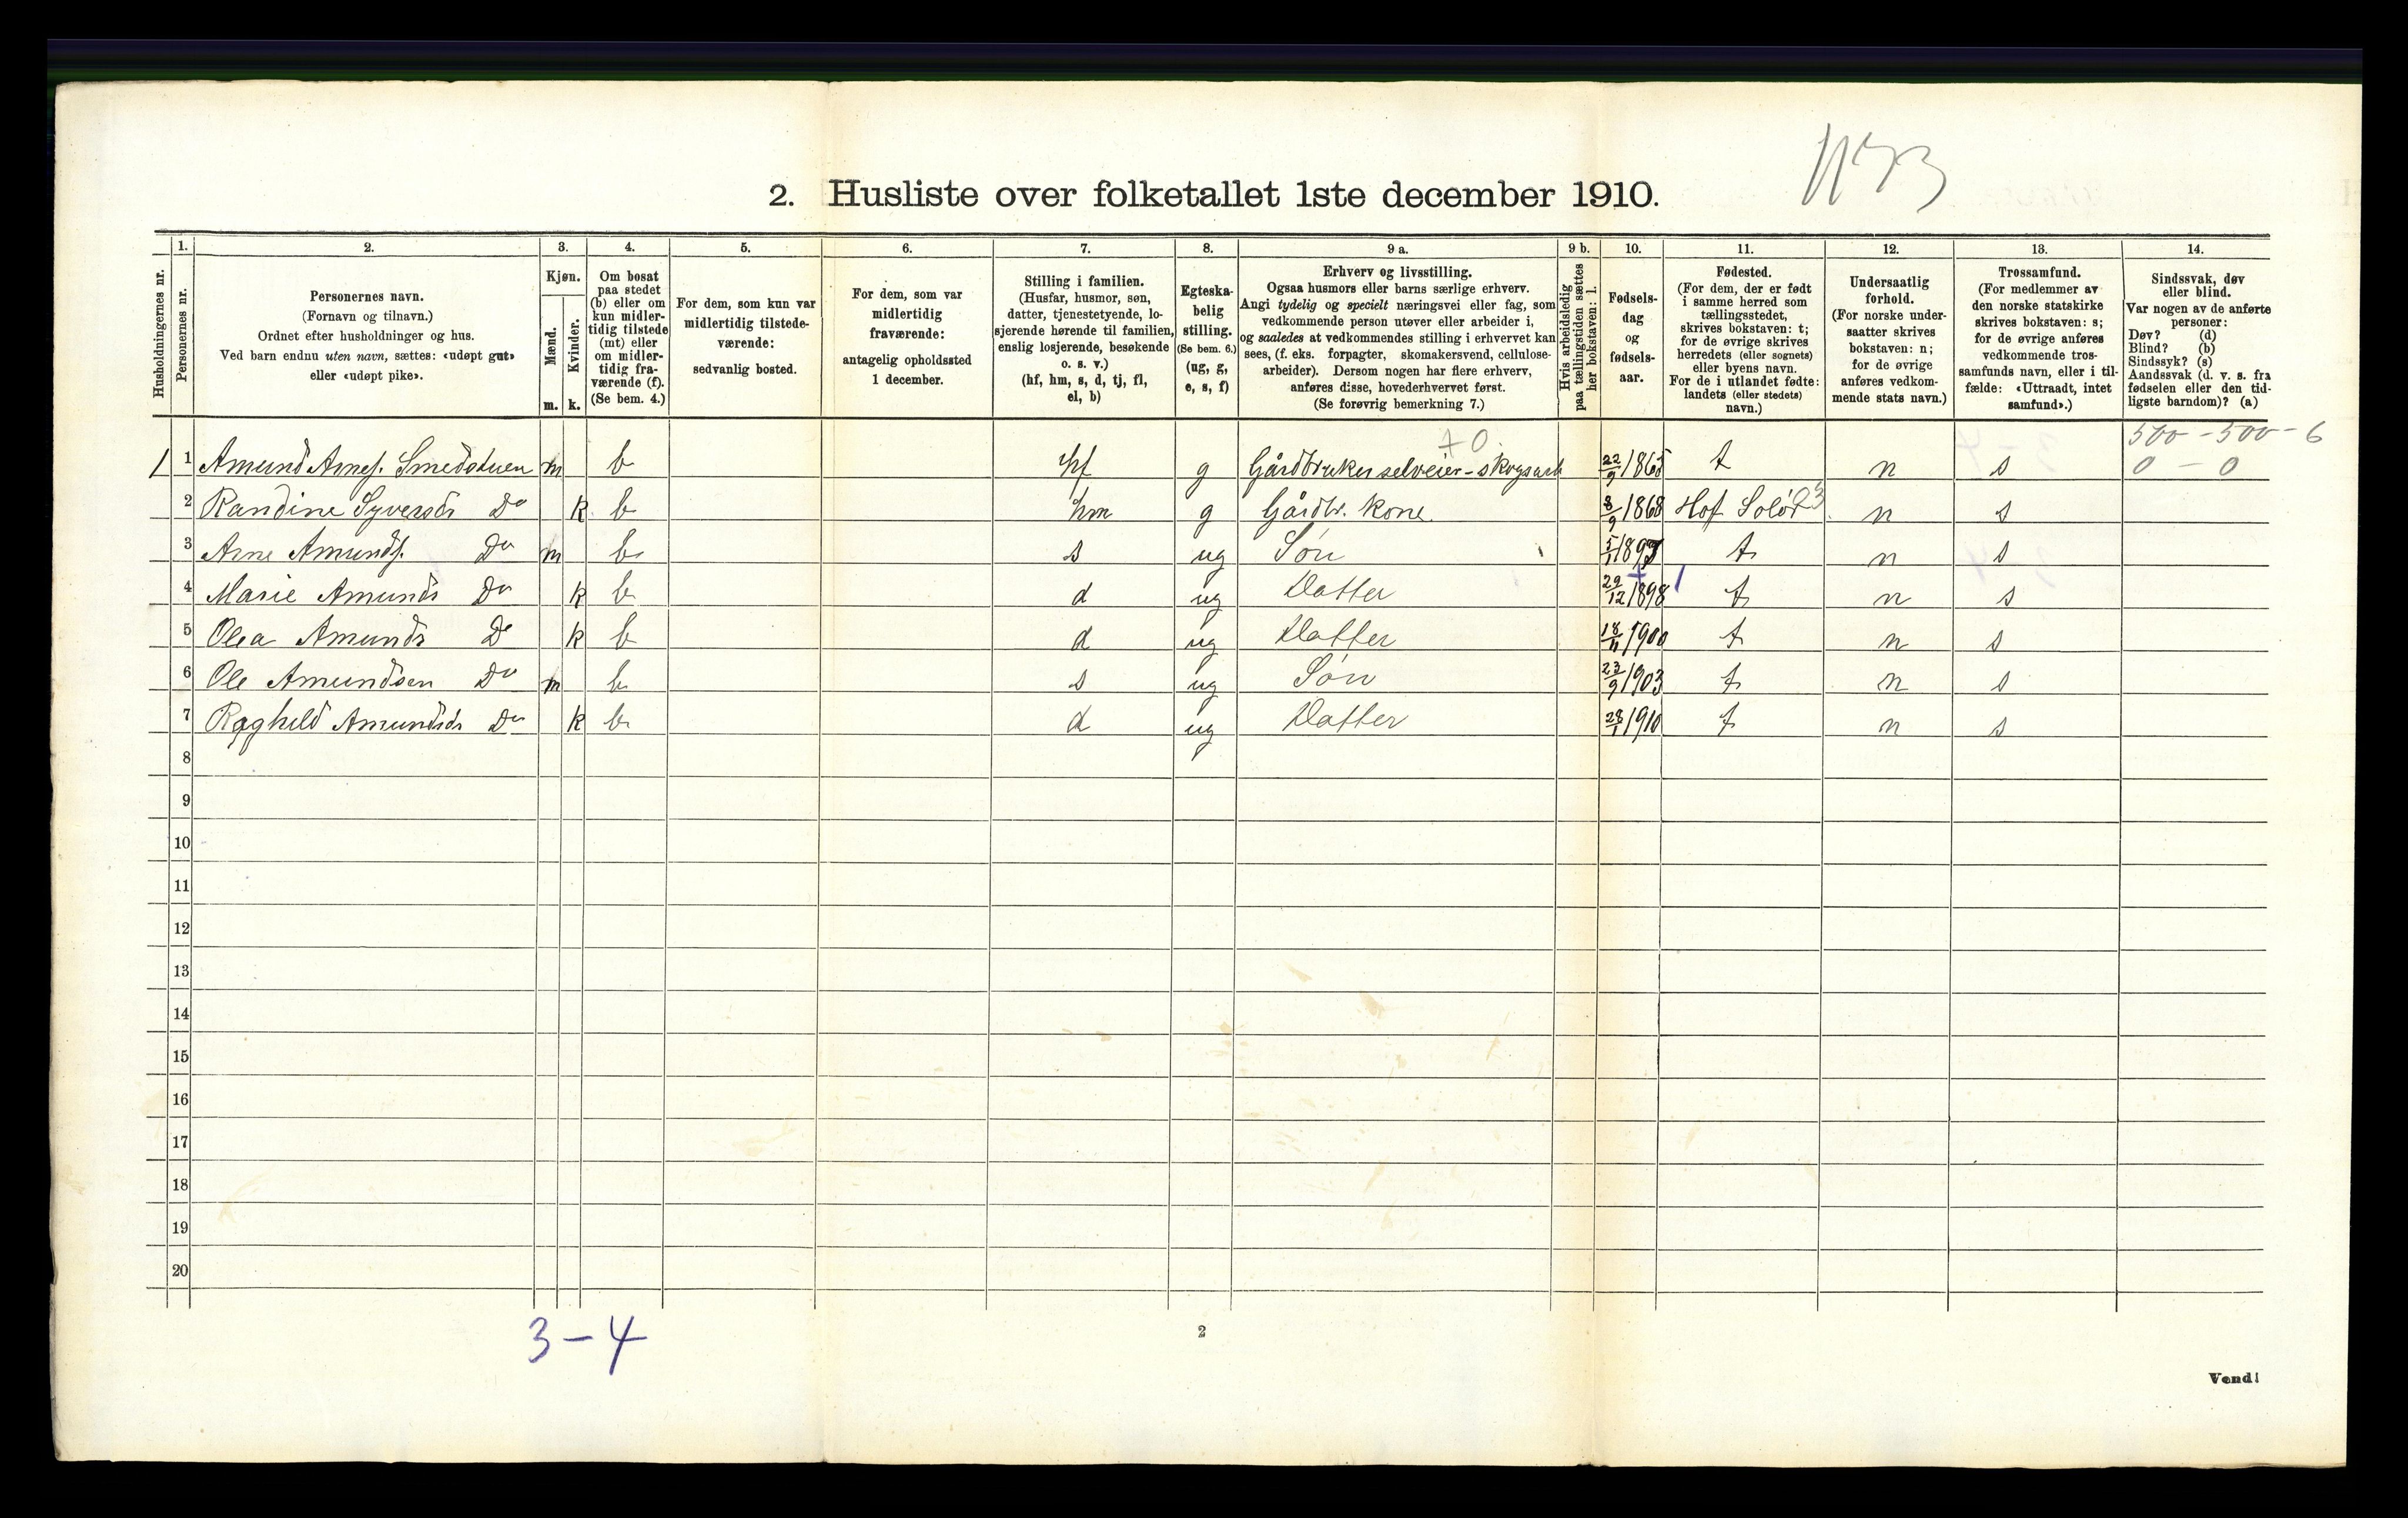 2. Husliste over folketallet 1ste december 1910.
1. 2. 3. 4. 5. 6. 7. 8. 9 a. 9 b. 10. 11. 12. 13. 14.
Husholdningernes nr.
Personernes nr.
Personernes navn.
(Fornavn og tilnavn.)
Ordnet efter husholdninger og hus.
Ved barn endnu uten navn, sættes: «udøpt gut»
eller «udøpt pike».
Kjøn.
Mænd.
Kvinder.
m. k.
Om bosat
paa stedet
(b) eller om
kun midler-
tidig tilstede
(mt) eller
om midler-
tidig fra-
værende (f).
(Se bem. 4.)
For dem, som kun var
midlertidig tilstede-
værende:
sedvanlig bosted.
For dem, som var
midlertidig
fraværende:
antagelig opholdssted
1 december.
Stilling i familien.
(Husfar, husmor, søn,
datter, tjenestetyende, lo-
sjerende hørende til familien,
enslig losjerende, besøkende
o. s. v.)
(hf, hm, s, d, tj, fl,
el, b)
Egteska-
belig
stilling.
(Se bem. 6.)
(ug, g,
e, s, f)
Erhverv og livsstilling.
Ogsaa husmors eller barns særlige erhverv.
Angi tydelig og specielt næringsvei eller fag, som
vedkommende person utøver eller arbeider i,
og saaledes at vedkommendes stilling i erhvervet kan
sees, (f. eks. forpagter, skomakersvend, cellulose-
arbeider). Dersom nogen har flere erhverv,
anføres disse, hovederhvervet først.
(Se forøvrig bemerkning 7.)
Hvis arbeidsledig
paa tællingstiden sættes
her bokstaven: l.
Fødsels-
dag
og
fødsels-
aar.
Fødested.
(For dem, der er født
i samme herred som
tællingsstedet,
skrives bokstaven: t;
for de øvrige skrives
herredets (eller sognets)
eller byens navn.
For de i utlandet fødte:
landets (eller stedets)
navn.)
Undersaatlig
forhold.
(For norske under-
saatter skrives
bokstaven: n;
for de øvrige
anføres vedkom-
mende stats navn.)
Trossamfund.
(For medlemmer av
den norske statskirke
skrives bokstaven: s;
for de øvrige anføres
vedkommende tros-
samfunds navn, eller i til-
fælde: «Uttraadt, intet
samfund».)
Sindssvak, døv
eller blind.
Var nogen av de anførte
personer:
Døv? (d)
Blind? (b)
Sindssyk? (s)
Aandssvak (d. v. s. fra
fødselen eller den tid-
ligste barndom)? (a)
70. 500-500-6
1 1 Amund Arnes. Smedstuen m b hf g Gårdbruker selveier - skogsarb 22/9 1865 t n s 0 - 0
2 Randine Syversdr Do k b hm g Gårdbr. Kone 8/9 1868 Hof Solør 23 n s
3 Arne Amunds. Do m b s ug Søn 5/1 1897 t n s
4 Marie Amunds Do k b d ug Datter 29/12 1898 1 t n s
5 Olea Amunds Do k b d ug Datter 18/11 1900 t n s
6 Ole Amundsen Do m b s ug Søn 23/9 1903 t n s
7 Raghild Amundsdr Do k b d ug Datter 28/1 1910 t n s
8
9
10
11
12
13
14
15
16
17
18
19
20
3-4
2
Vend!